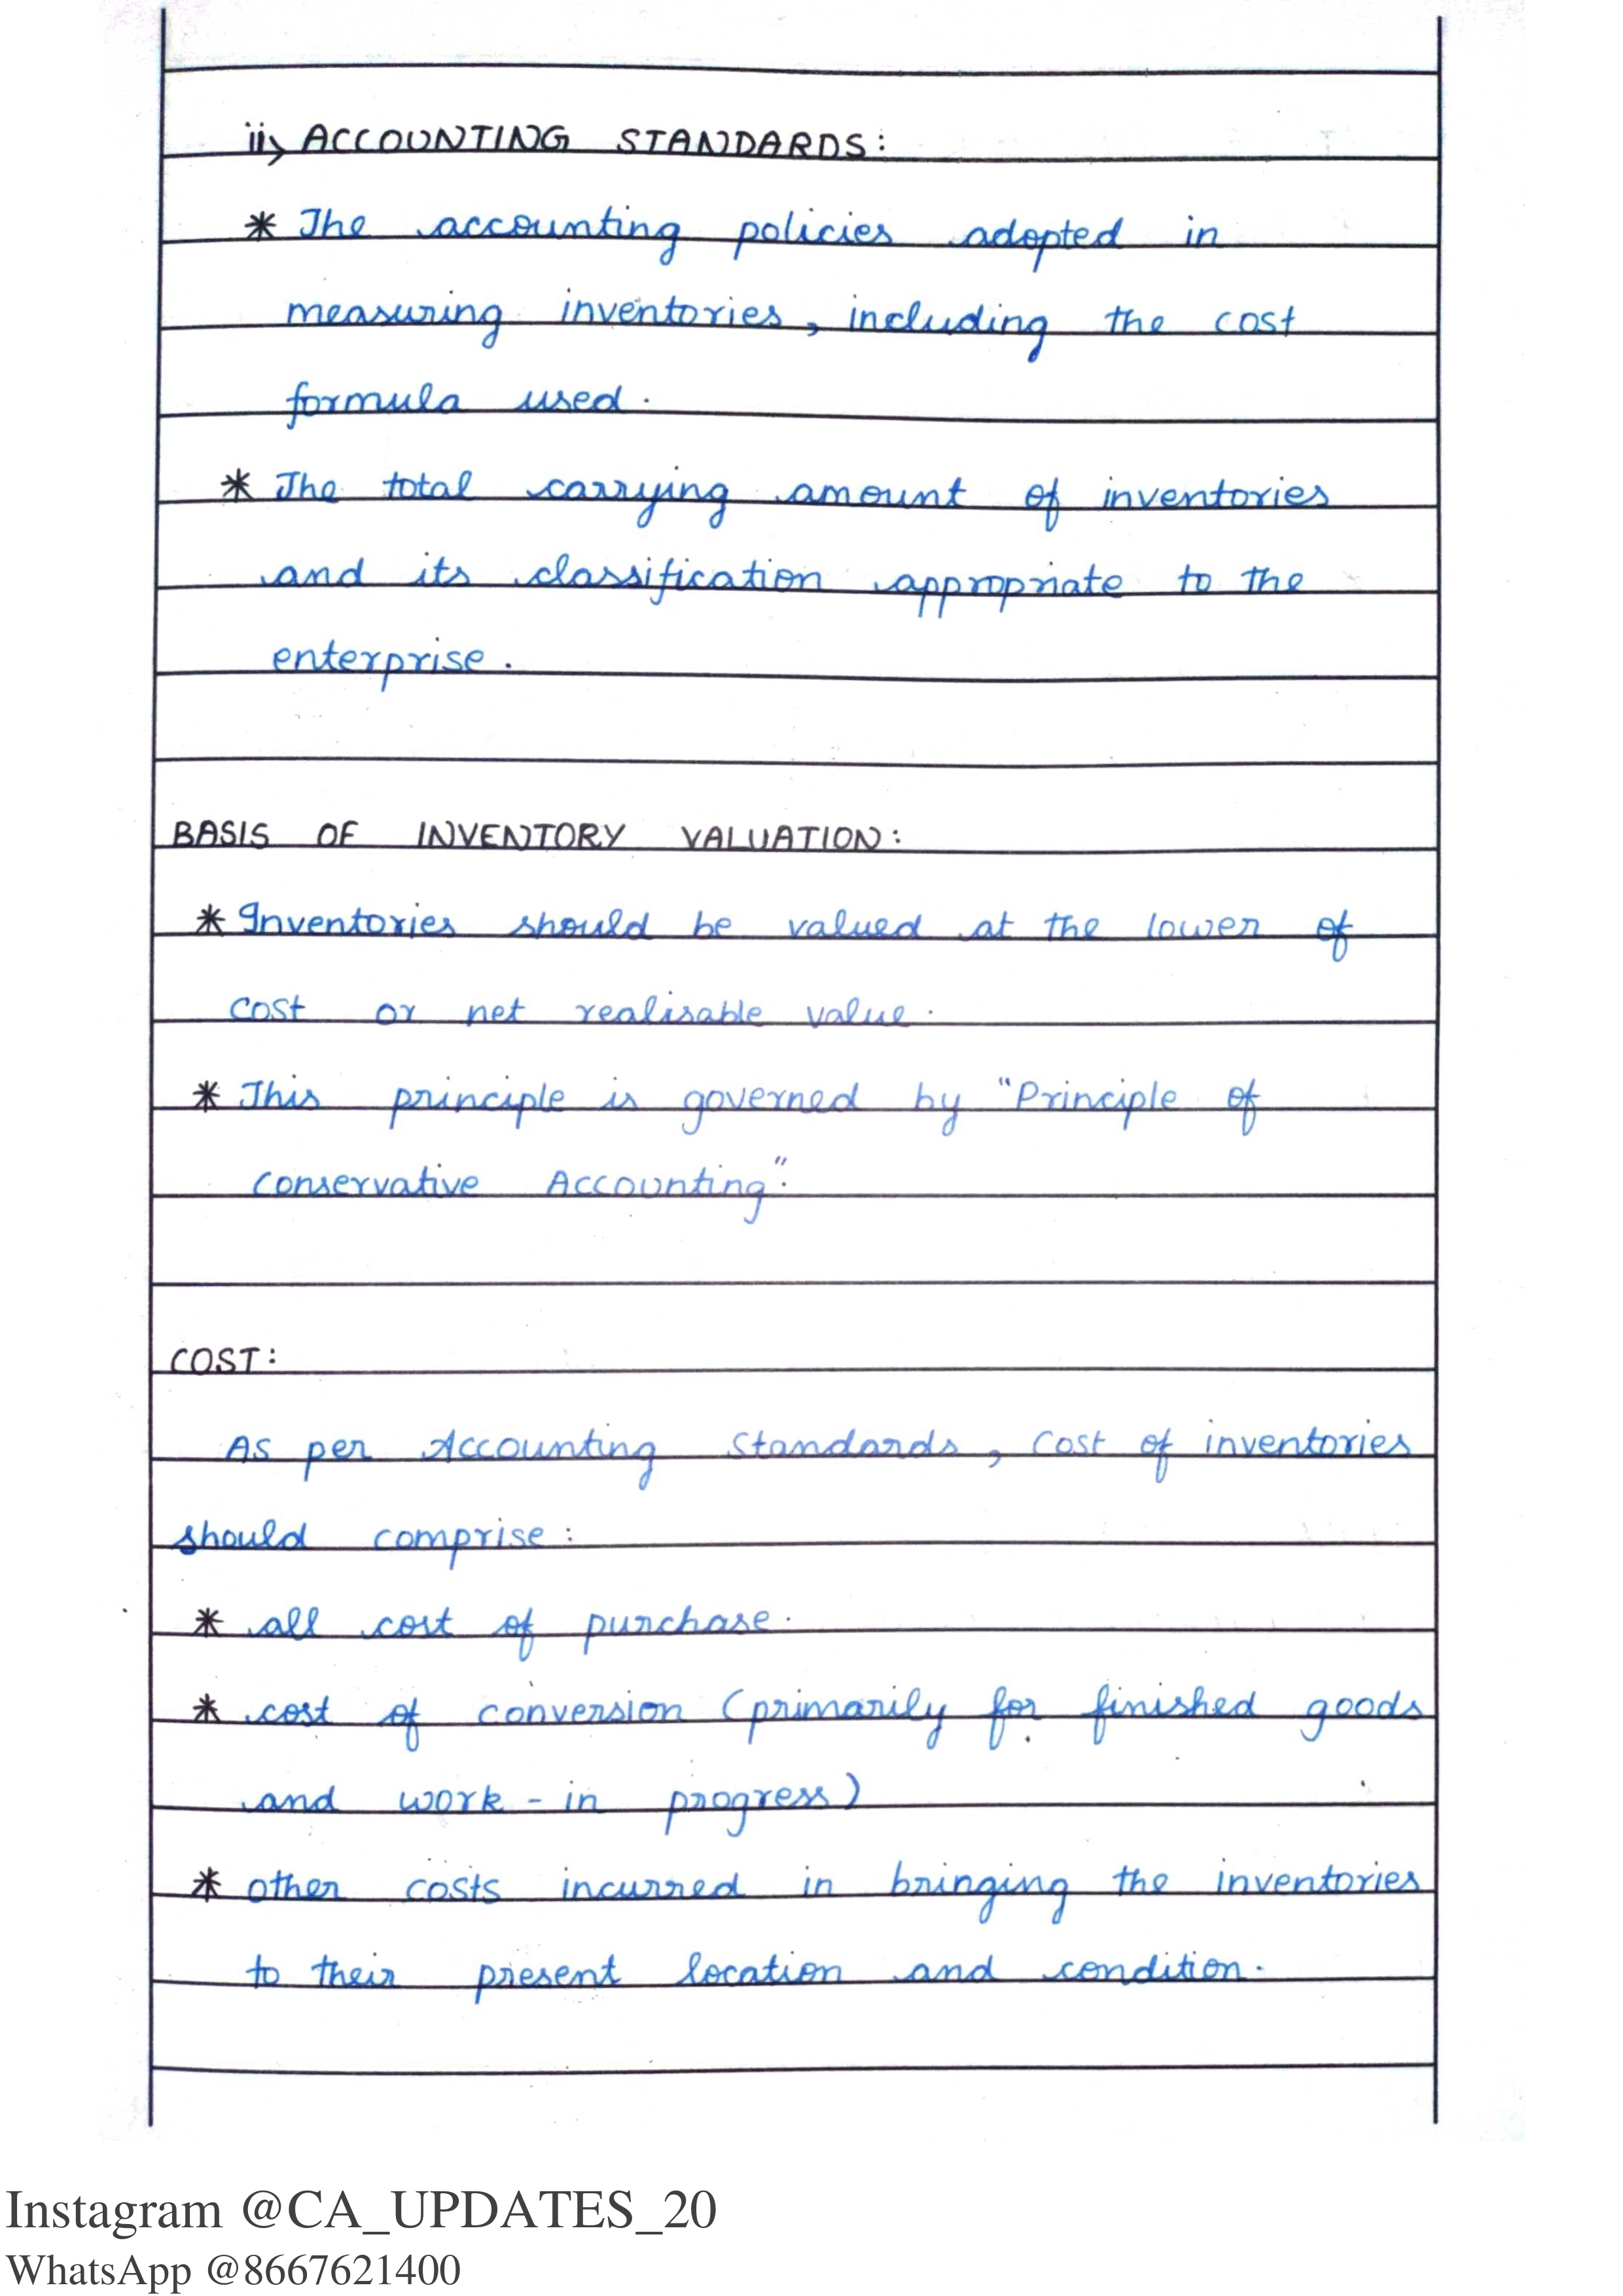 ii) ACCOUNTING STANDARDS:
* The accounting policies adopted in
measuring inventories, including the cost
formula used.
* The total carrying amount of inventories
and its classification appropriate to the
enterprise.
BASIS OF INVENTORY VALUATION:
* Inventories should be valued at the lower of
cost or net realisable value.
* This principle is governed by "Principle of
Conservative Accounting".
COST:
As per Accounting Standards, cost of inventories
should comprise:
* all cost of purchase.
* cost of conversion (primarily for finished goods
and work-in progress)
* other costs incurred in bringing the inventories
to their present location and condition.
Instagram @CA_UPDATES_20
WhatsApp @8667621400